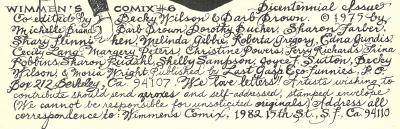 WIMMEN'S COMIX #6 Bicentennial Issue
Co edited by Becky Wilson & Barb Brown. © 1975 by
Michelle Brand, Barb Brown, Dorothy Bucher, Sharon Farber,
Shary Flenniken, Melinda Gebbie, Roberta Gregory, Edna Jundis
Cecily Lang, Margery Peters, Christine Powers, Terry Richards, Trina
Robbins, Sharon Rudahl, Shelby Sampson, Joyce Sutton, Becky
Wilson, & Moria Wright Published by Last Gasp Eco funnies, P.O.
Box 212 Berkeley, Ca. 94107. We love letters. Artists wishing to
contribute should send xeroxes and self-addressed, stamped envelope
(We cannot be responsible for unsolicited originals) Address all
correspondence to: Wimmens Comix, 1982 15th St., S.f. Ca. 94110